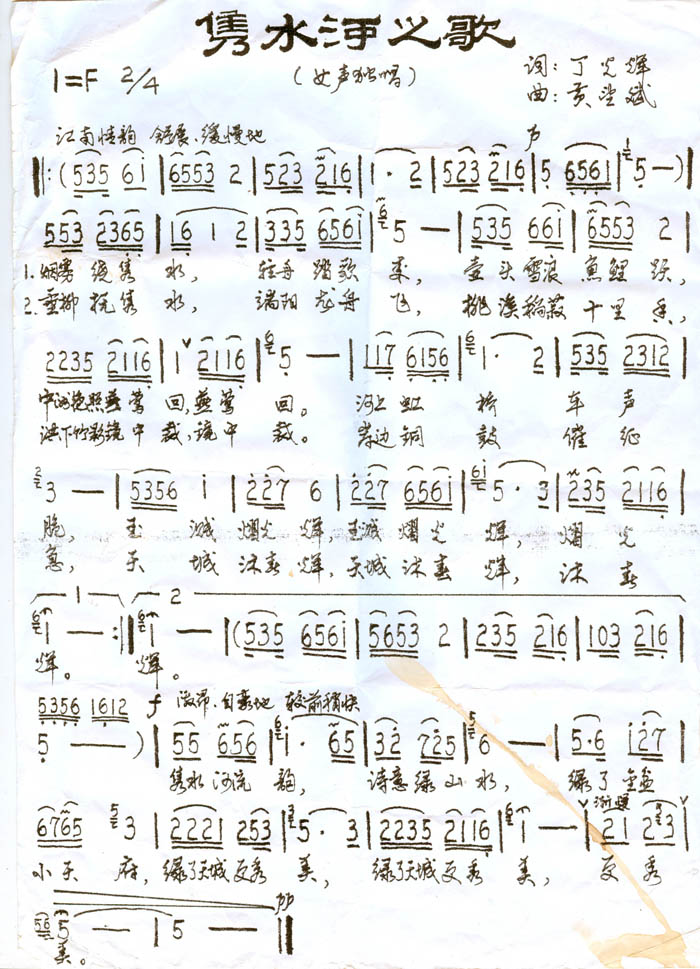 隽水河之歌
（女声独唱）
1=F 2/4
词：丁光辉
曲：黄望斌
江南情韵 舒展、缓慢地
‖:(535 6i | 6553 2 | 523 216 | 1· 2 | 523 216 | 5 6561 | 5 —) |
553 2365 | 16 1 2 | 335 656i | 5 — | 535 66i | 6553 2 |
1. 烟雾绕隽水， 踏歌来， 壶头雪浪魚鲤跃，
2. 垂柳抚隽水， 端阳龙舟飞， 桃溪稻菽十里香，
2235 2116 | 1 2116 | 5 — | 117 6156 | 1· 2 | 535 2312 |
照燕莺回，燕莺回。 河上虹桥车声
竹影镜中裁，镜中裁。 岸边铜鼓催征
3 — | 5356 i | 227 6 | 227 656i | 5· 3 | 235 2116 |
脆， 熠光辉， 熠光辉， 熠光
急， 天城沐春辉，天城沐春辉， 沐春
1 2
1 — :‖ 1 — | (535 656i | 5653 2 | 235 216 | 103 216 |
辉。 辉。
5356 1612 f 激昂、自豪地 较前稍快
5 —) | 55 656 | i· 65 | 32 725 | 6 — | 5·6 i27 |
隽水河流韵， 诗意绿山水， 绿了
渐慢
6765 3 | 2221 253 | 5· 3 | 2235 2116 | 1 — | 21 23 |
小天府，绿了天城更秀美， 绿了天城更秀美， 更秀
pp
5 — | 5 — ‖
美。